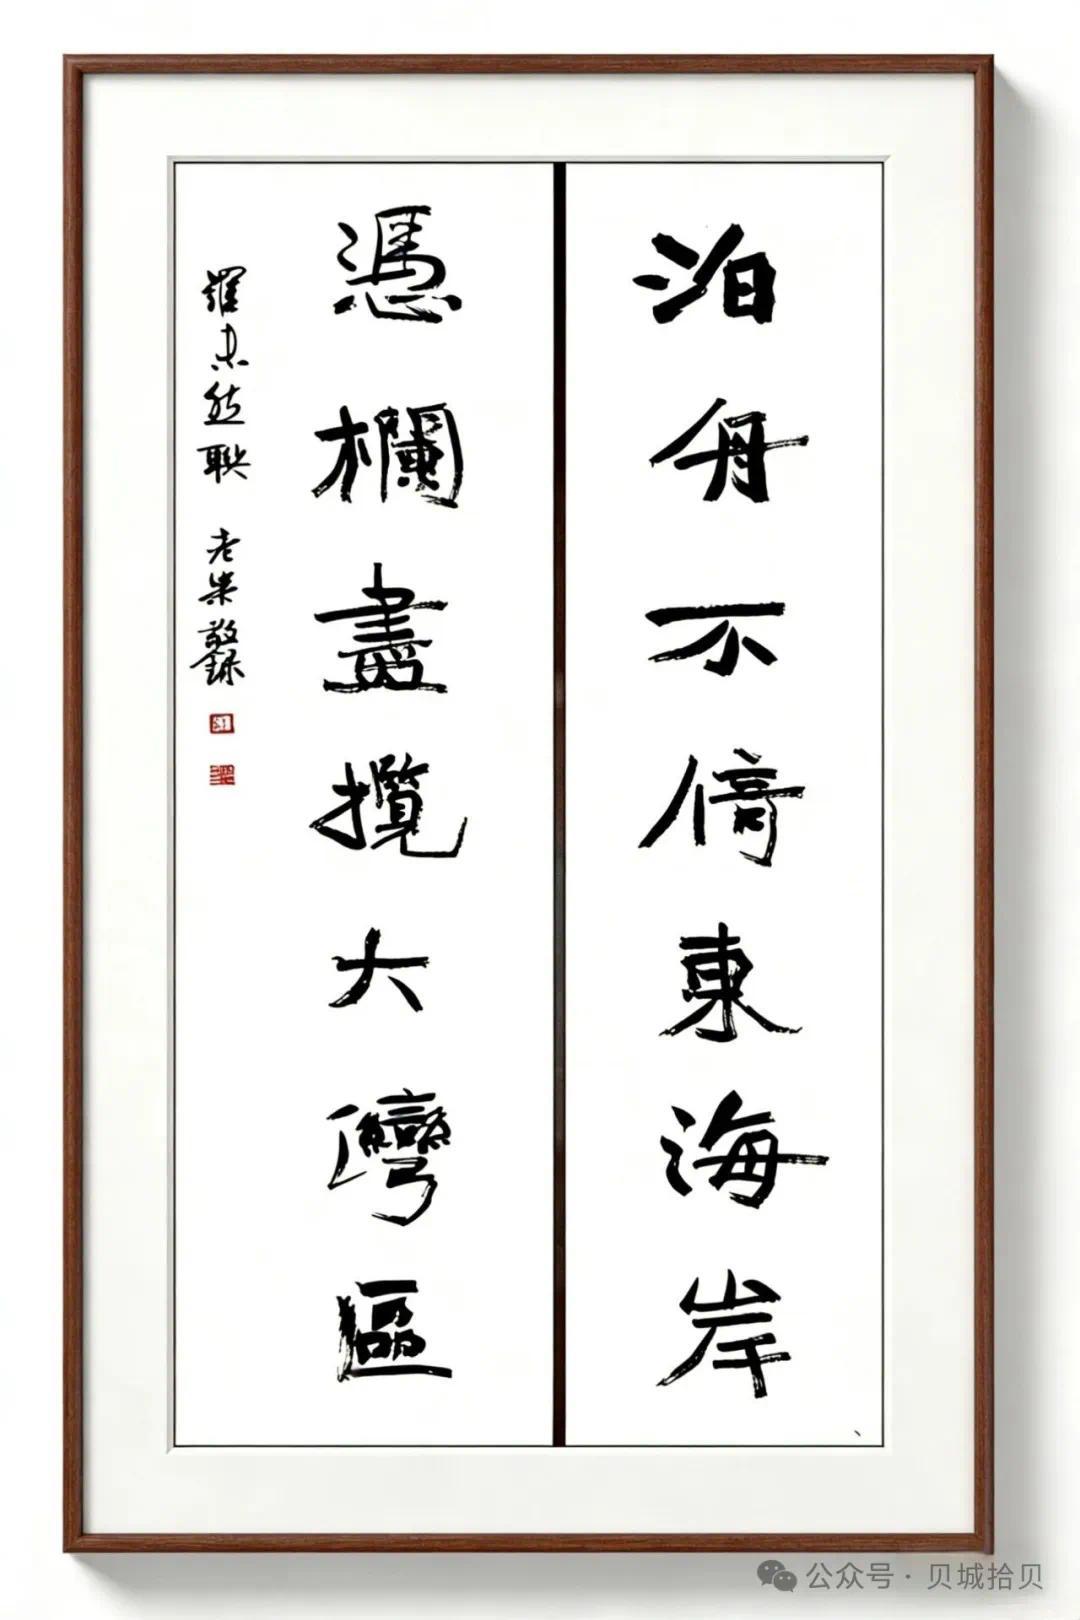 泊舟不倚東海岸
憑欄盡攬大灣區
羅未然聯 老柒敬録
公众号 · 贝城拾贝